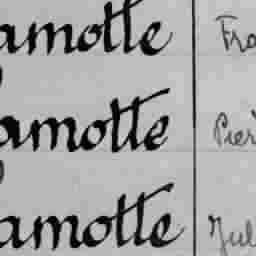 amotte Fra
amotte Pier
amotte Jul